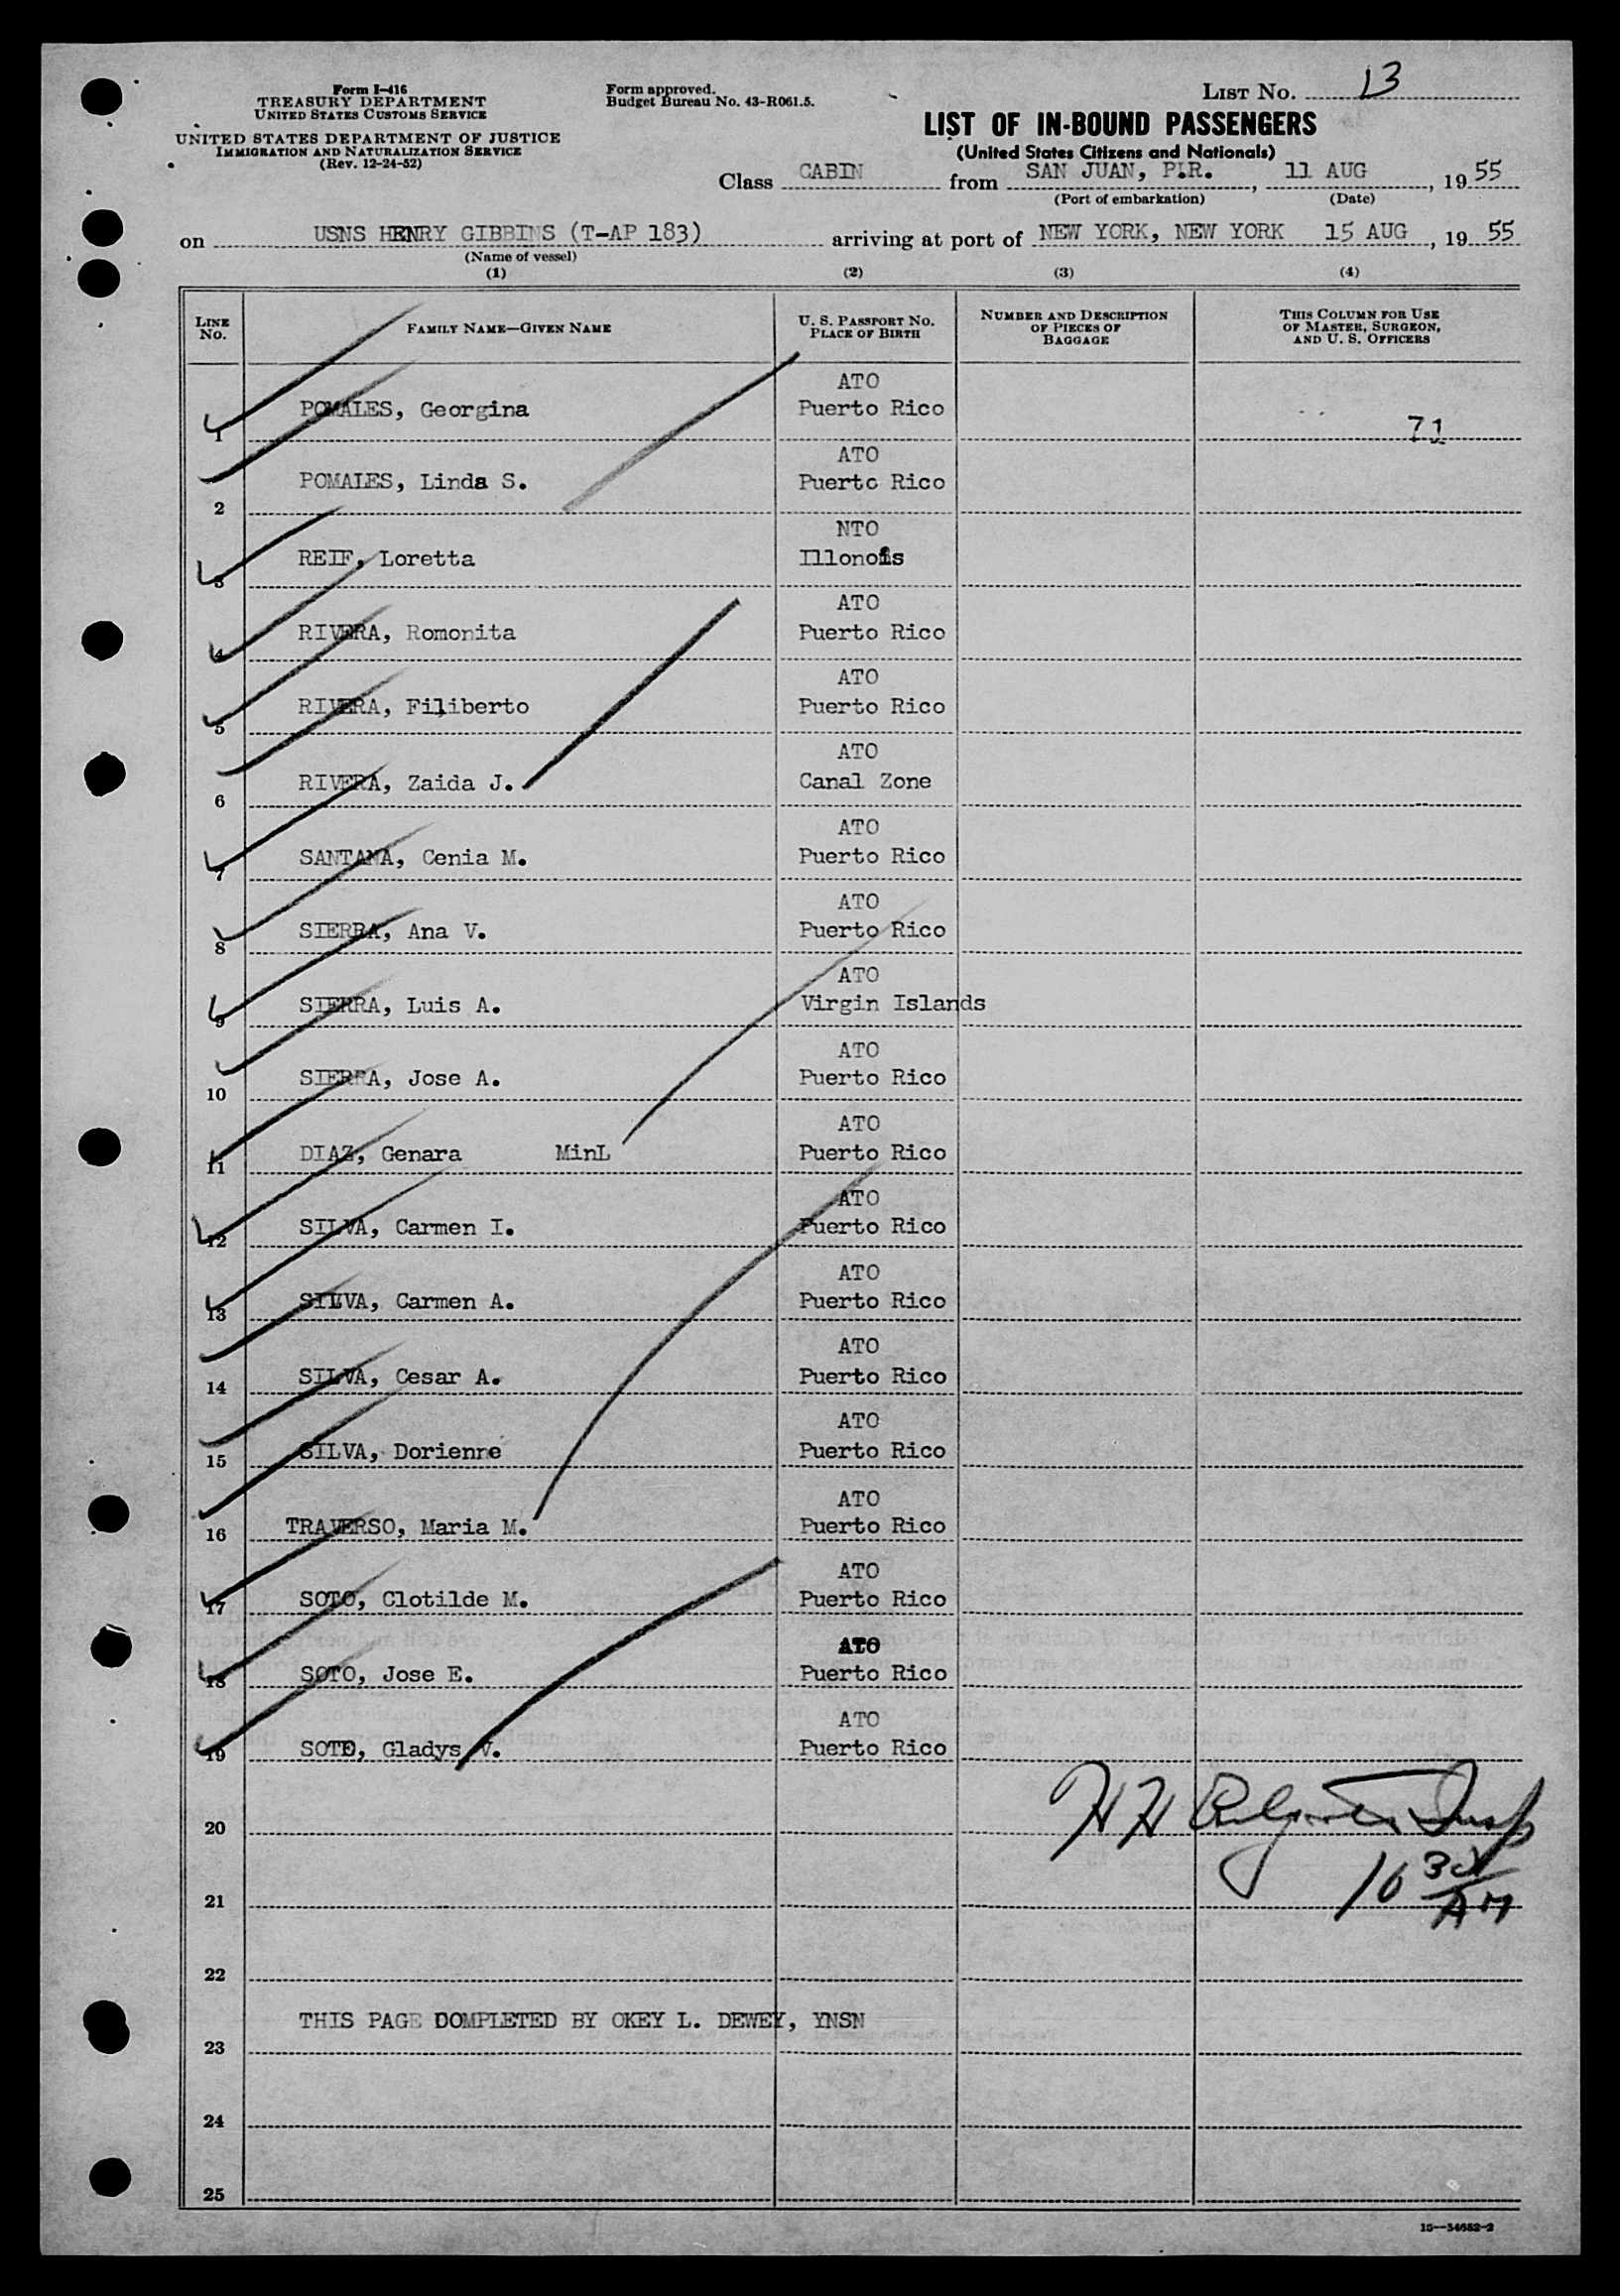 Form I-416
TREASURY DEPARTMENT
UNITED STATES CUSTOMS SERVICE
UNITED STATES DEPARTMENT OF JUSTICE
IMMIGRATION AND NATURALIZATION SERVICE
(Rev. 12-24-52)
Form approved.
Budget Bureau No. 43-R061.5.
LIST NO. 13
LIST OF IN-BOUND PASSENGERS
(United States Citizens and Nationals)
Class CABIN from SAN JUAN, P.R., 11 AUG, 1955
(Port of embarkation) (Date)
on USNS HENRY GIBBINS (T-AP 183) arriving at port of NEW YORK, NEW YORK 15 AUG, 1955
(Name of vessel)
(1) (2) (3) (4)
LINE NO. FAMILY NAME—GIVEN NAME U. S. PASSPORT NO. PLACE OF BIRTH NUMBER AND DESCRIPTION OF PIECES OF BAGGAGE THIS COLUMN FOR USE OF MASTER, SURGEON, AND U. S. OFFICERS
ATO
1 POMALES, Georgina Puerto Rico 71
ATO
2 POMALES, Linda S. Puerto Rico
NTO
3 REIF, Loretta Illonois
ATO
4 RIVERA, Romonita Puerto Rico
ATO
5 RIVERA, Filiberto Puerto Rico
ATO
6 RIVERA, Zaida J. Canal Zone
ATO
7 SANTANA, Cenia M. Puerto Rico
ATO
8 SIERRA, Ana V. Puerto Rico
ATO
9 SIERRA, Luis A. Virgin Islands
ATO
10 SIERRA, Jose A. Puerto Rico
ATO
11 DIAZ, Genara MinL Puerto Rico
ATO
12 SILVA, Carmen I. Puerto Rico
ATO
13 SILVA, Carmen A. Puerto Rico
ATO
14 SILVA, Cesar A. Puerto Rico
ATO
15 SILVA, Dorienne Puerto Rico
ATO
16 TRAVERSO, Maria M. Puerto Rico
ATO
17 SOTO, Clotilde M. Puerto Rico
ATO
18 SOTO, Jose E. Puerto Rico
ATO
19 SOTO, Gladys V. Puerto Rico
20 H H Insp
21 10 30 AM
22
THIS PAGE COMPLETED BY OKEY L. DEWEY, YNSN
23
24
25